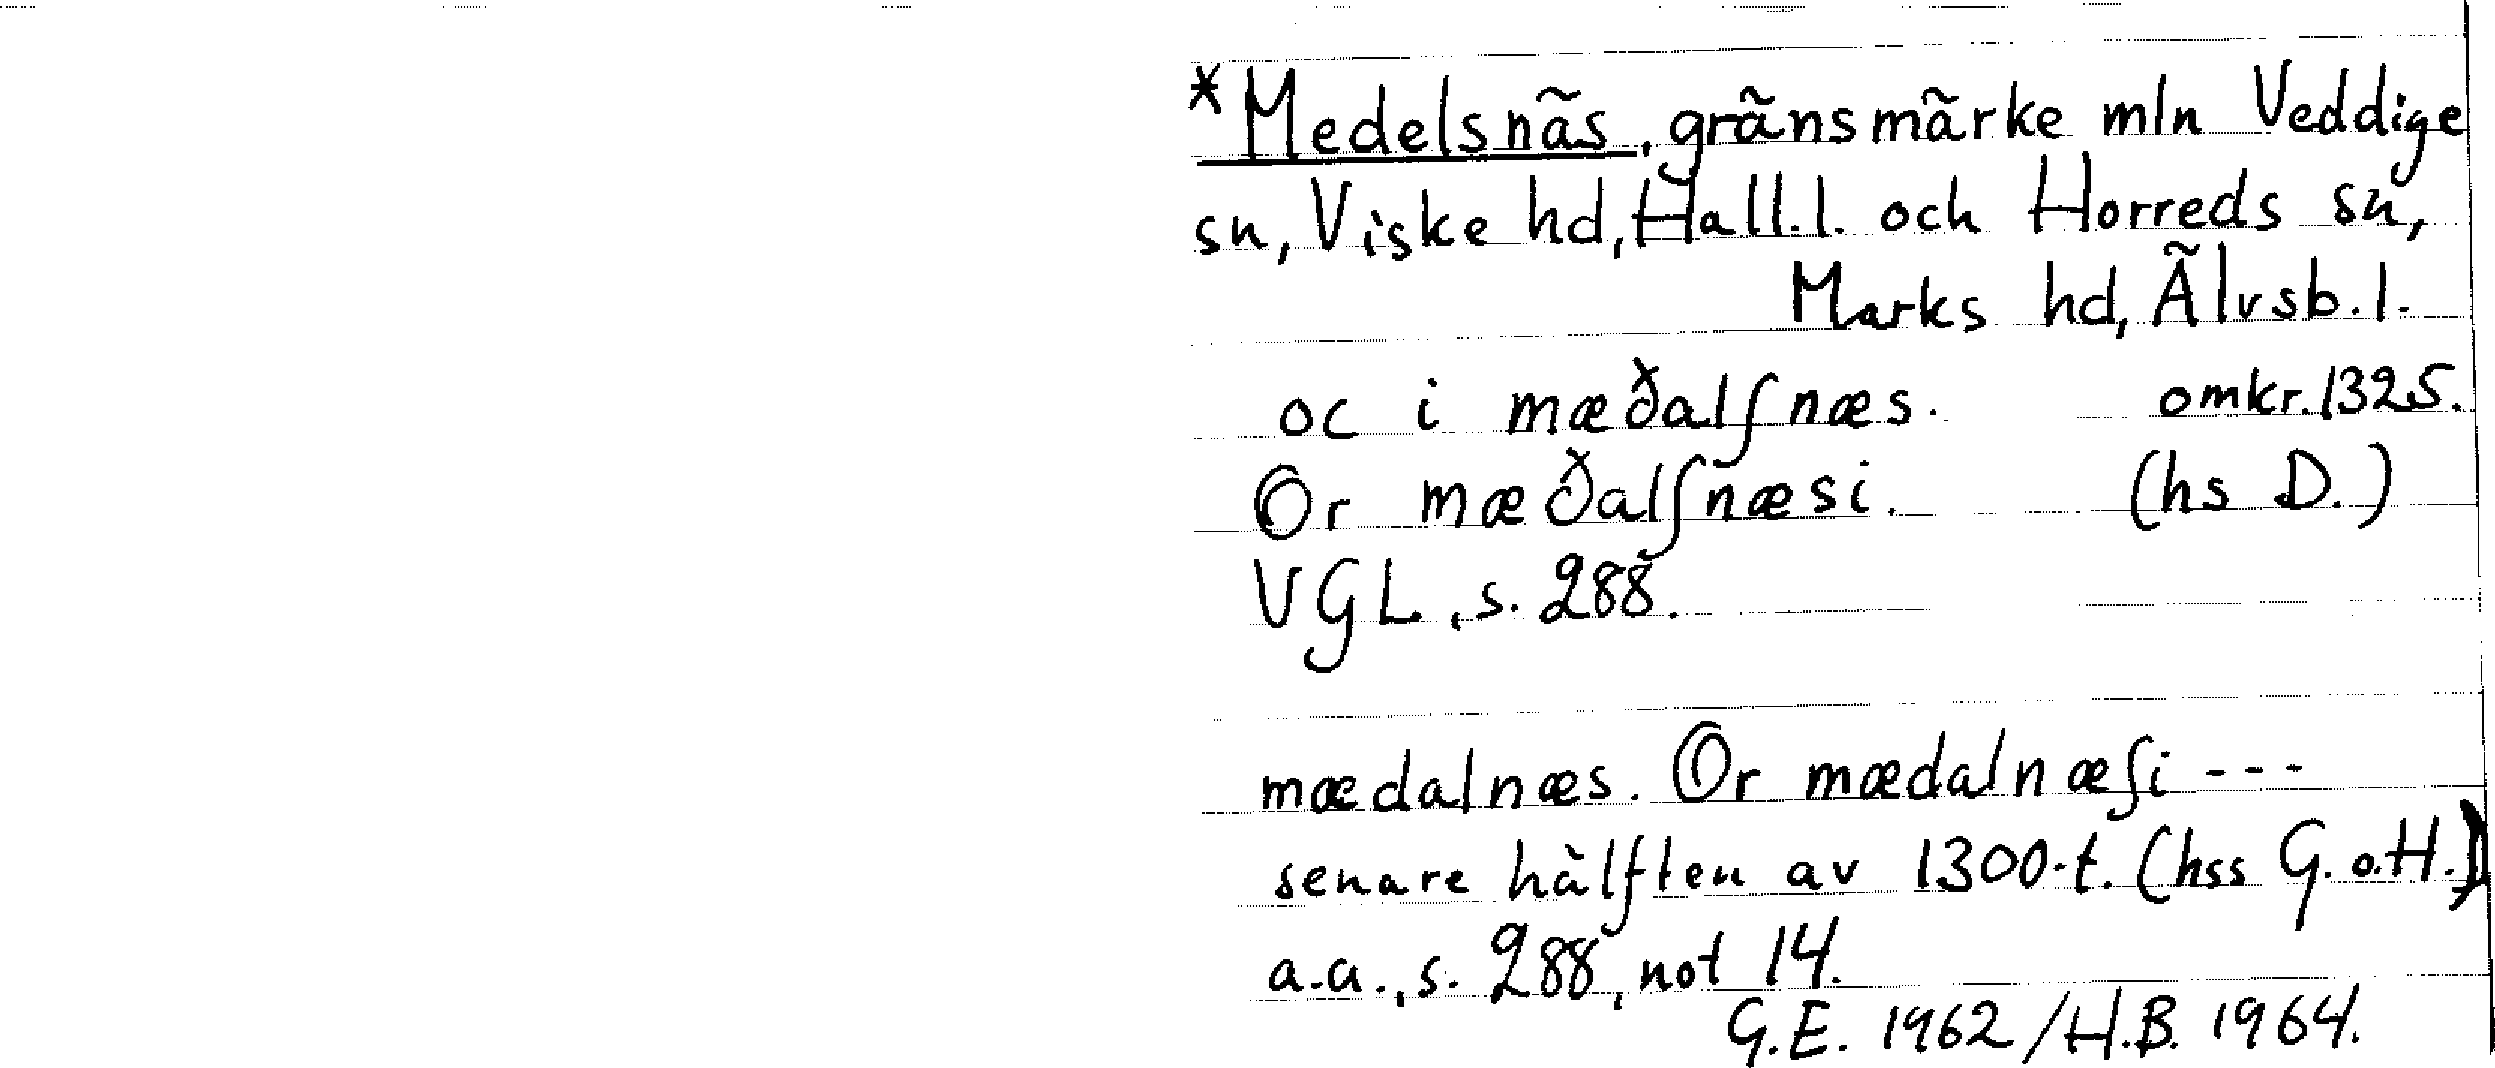 *Medelsnäs, gränsmärke mln Veddige
sn, Viske hd, Hall.l. och Horreds sn,
Marks hd, Älvsb.l.
oc i mæðalſnæs. omkr. 1325.
Or mæðalſnæsi. (hs D.)
VGL, s. 288.
mædalnæs. Or mædalnæſi ---
senare hälften av 1300-t. (hss G. o. H.)
a.a., s. 288, not 14.
G.E. 1962 / H.B. 1964.